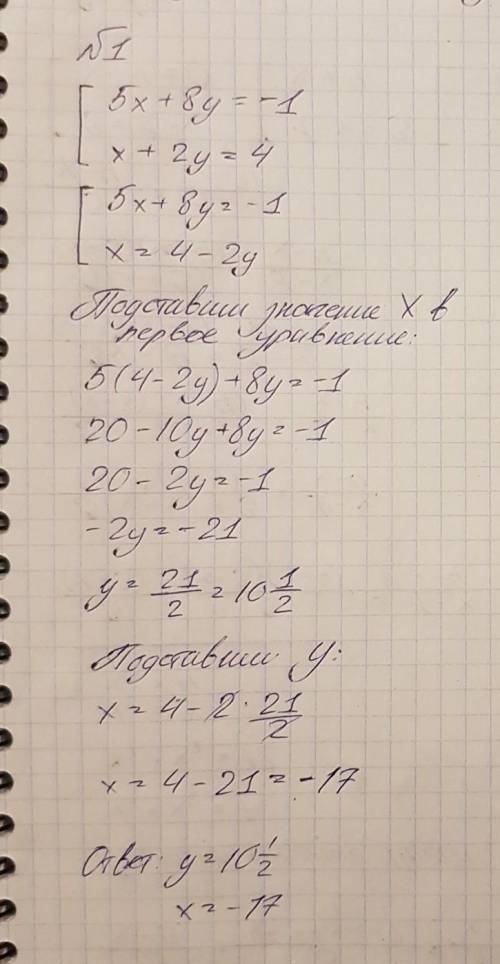 №1
5x + 8y = -1
x + 2y = 4
5x + 8y = -1
x = 4 - 2y
Подставим значение x в
первое уравнение:
5(4 - 2y) + 8y = -1
20 - 10y + 8y = -1
20 - 2y = -1
-2y = -21
y = 21/2 = 10 1/2
Подставим y:
x = 4 - 2 · 21/2
x = 4 - 21 = -17
Ответ: y = 10 1/2
x = -17